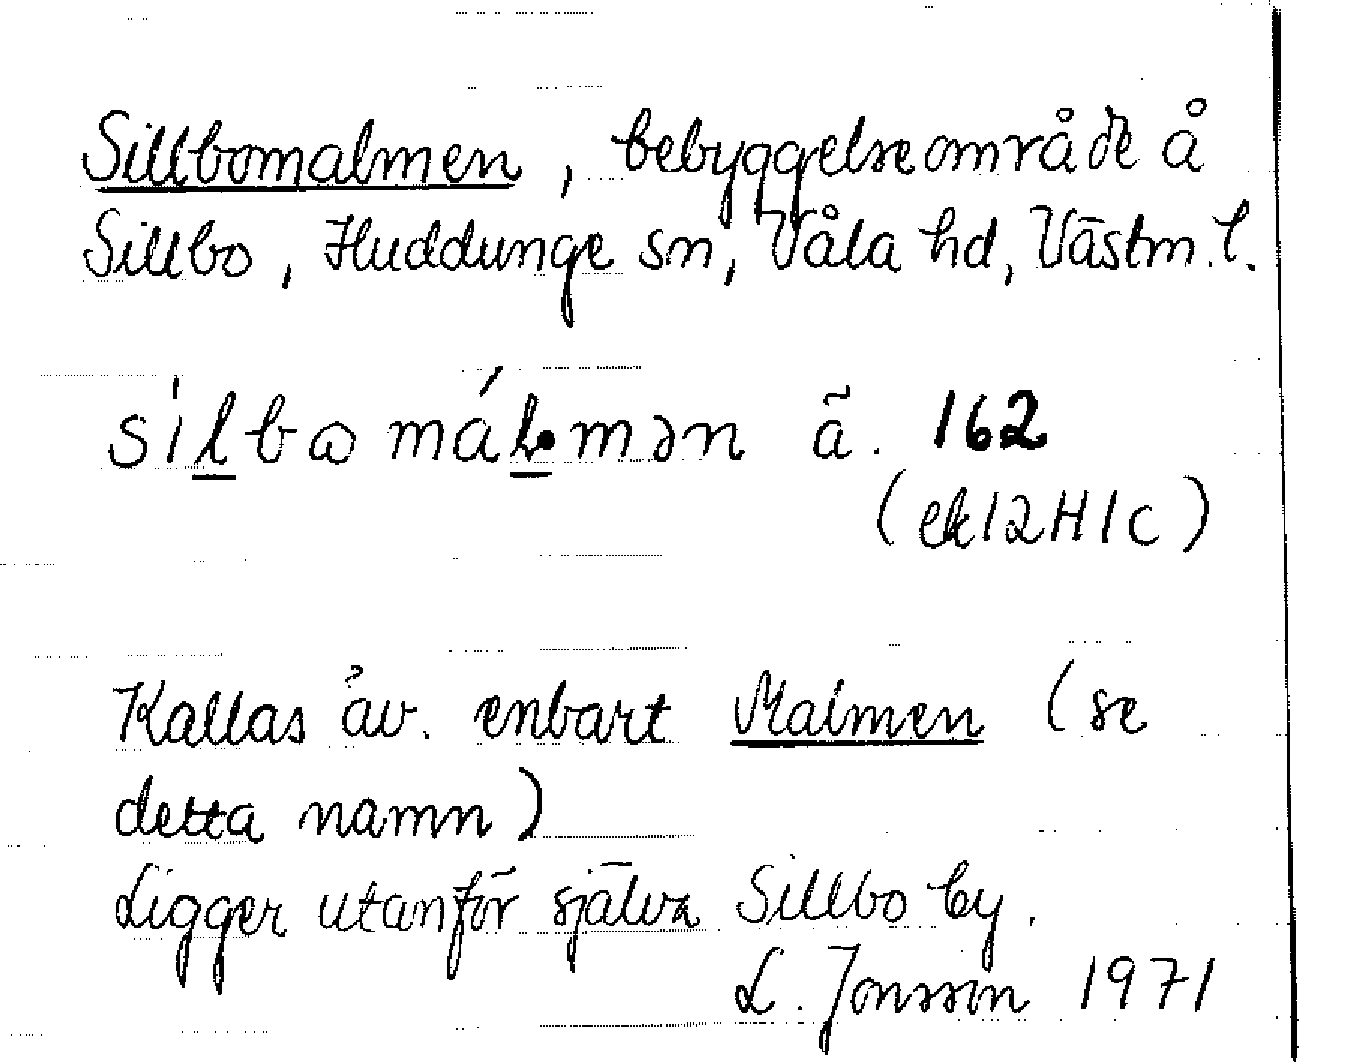 Sillbomalmen, bebyggelseområde å
Sillbo, Huddunge sn, Våla hd, Västm. l.
silbo málmən ä. 162
(ek 12H1c)
Kallas äv. enbart Malmen (se
detta namn)
Ligger utanför själva Sillbo by.
L. Jonsson 1971